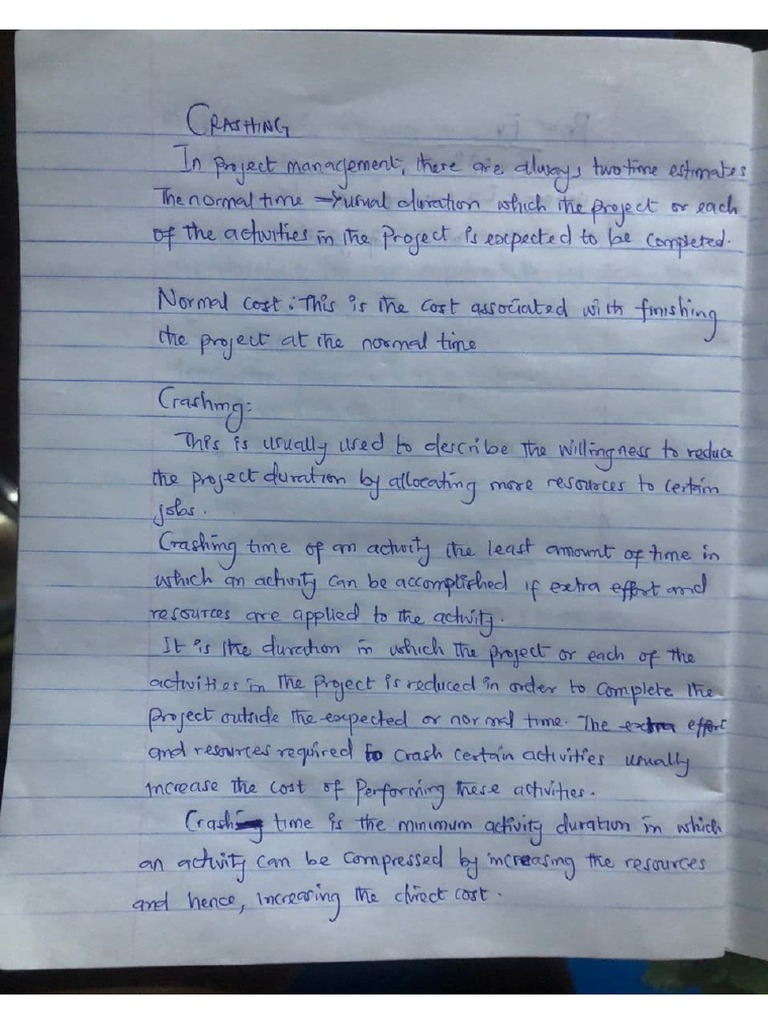 CRASHING
In project management, there are always two time estimates
The normal time → usual duration which the project or each
of the activities in the Project is expected to be completed.
Normal cost: This is the cost associated with finishing
the project at the normal time
Crashing:
This is usually used to describe the willingness to reduce
the project duration by allocating more resources to certain
jobs.
Crashing time of an activity the least amount of time in
which an activity can be accomplished if extra effort and
resources are applied to the activity.
It is the duration in which the project or each of the
activities in the project is reduced in order to complete the
project outside the expected or normal time. The extra effort
and resources required to crash certain activities usually
increase the cost of performing these activities.
Crashing time is the minimum activity duration in which
an activity can be compressed by increasing the resources
and hence, increasing the direct cost.